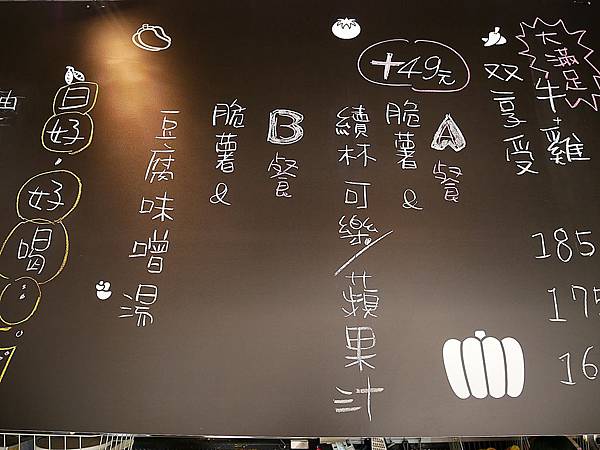 大滿足
牛+雞
双享受
185
175
16
+49元
A餐
脆薯&
續杯可樂/蘋果汁
B餐
脆薯&
豆腐味噌湯
白好.好喝
油